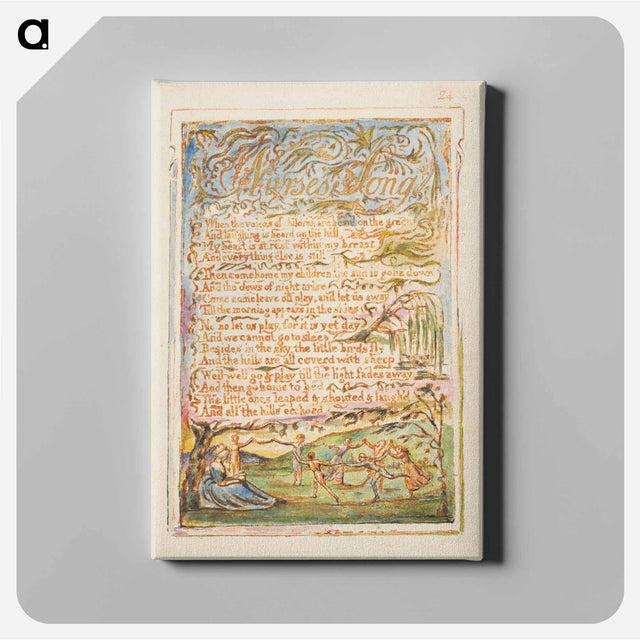 a
24
Nurse's Song
When the voices of children, are heard on the green
And laughing is heard on the hill,
My heart is at rest within my breast
And every thing else is still
Then come home my children the sun is gone down
And the dews of night arise
Come come leave off play, and let us away
Till the morning appears in the skies
No no let us play, for it is yet day
And we cannot go to sleep
Besides in the sky, the little birds fly
And the hills are all coverd with sheep
Well well go & play till the light fades away
And then go home to bed
The little ones leaped & shouted & laugh'd
And all the hills ecchoed